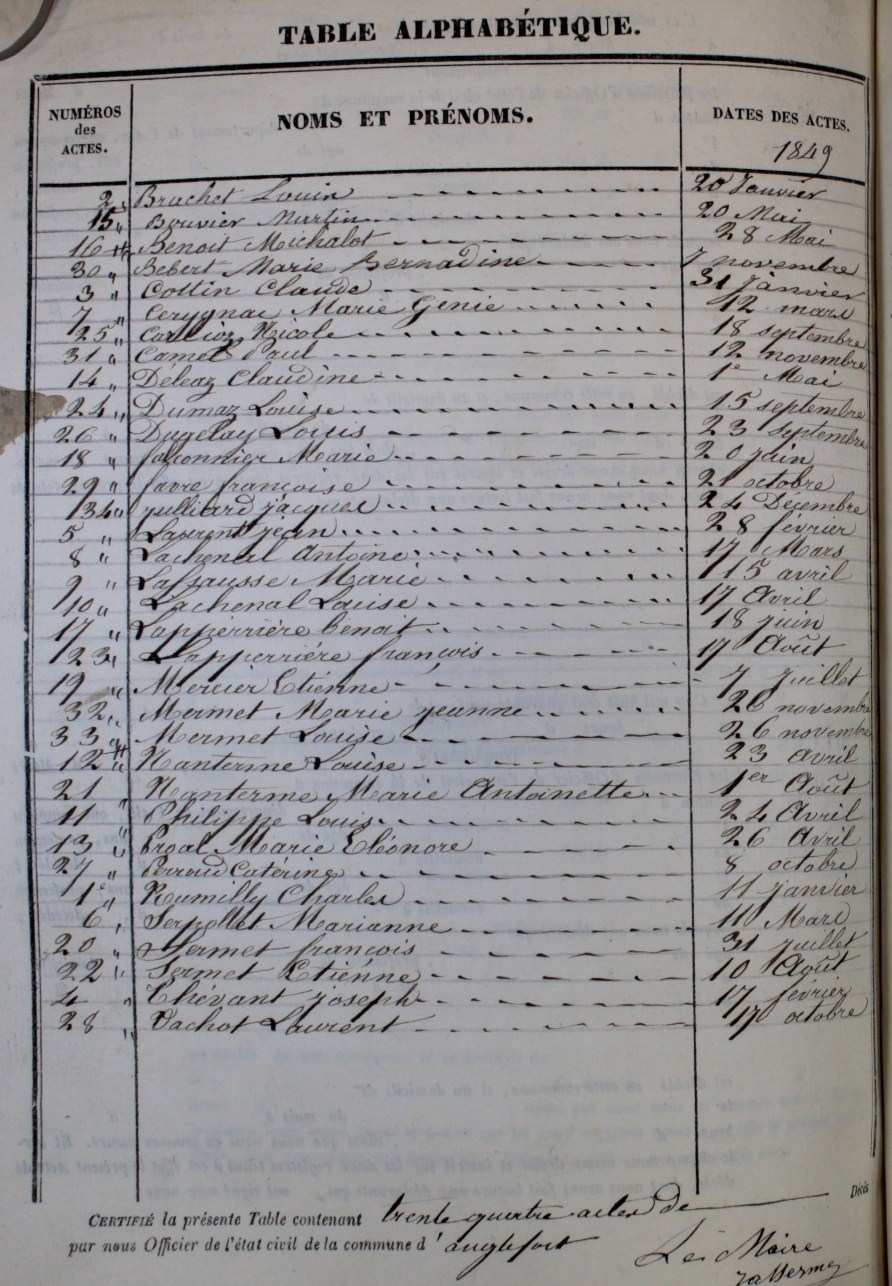 TABLE ALPHABÉTIQUE.
NUMÉROS des ACTES. NOMS ET PRÉNOMS. DATES DES ACTES.
1849
2 " Brachet Louin 20 Janvier
15 " Bouvier Martin 20 Mai
16 " Benoit Michalot 28 Mai
30 " Bebert Marie Bernadine 7 novembre
3 " Cottin Claude 31 Janvier
7 " Cerygnac Marie Genie 12 mars
25 " Nicole 18 septembre
31 " Camot Paul 12 novembre
14 " Déleaz Claudine 1er Mai
24 " Dumaz Louise 15 septembre
26 " Dugelay Louis 23 septembre
18 " falconnier Marie 20 juin
29 " favre françoise 21 octobre
34 " julliard jacques 24 Décembre
5 " Laurent jean 28 février
8 " Lachenal Antoine 17 Mars
9 " Lafsausse Marie 15 avril
10 " Lachenal Louise 17 Avril
17 " Lapperrière benoit 18 juin
23 " Lapperriére françois 17 Août
19 " Mercier Etienne 7 juillet
32 " Mermet Marie jeanne 26 novembre
33 " Mermet Louise 26 novembre
12 " Nanterme Louise 23 Avril
21 " Nanterme Marie Antoinette 1er Août
11 " Philippe Louis 24 Avril
13 " Prgal Marie Eléonore 26 Avril
27 " Perroud Catérine 8 octobre
1er " Rumilly Charles 11 janvier
6 " Serpollet Marianne 11 Mars
20 " Sermet françois 31 juillet
22 " Sermet Etiénne 10 Août
4 " Thévant joseph 17 fevrier
28 " Vachot Laurent 17 octobre
Décès
CERTIFIÉ la présente Table contenant trente quatre actes de
par nous Officier de l'état civil de la commune d'anglefort
Le Maire